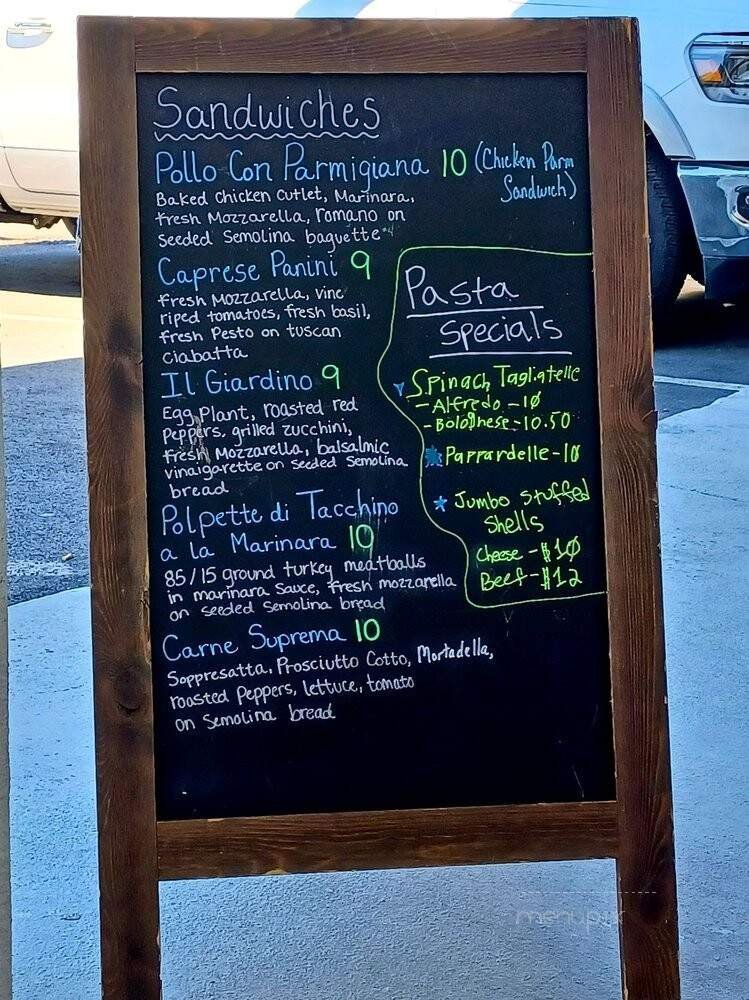 Sandwiches
Pollo Con Parmigiana 10 (Chicken Parm
Sandwich)
Baked chicken cutlet, Marinara,
fresh Mozzarella, romano on
seeded Semolina baguette
Caprese Panini 9
fresh Mozzarella, vine
riped tomatoes, fresh basil,
fresh Pesto on tuscan
ciabatta
Il Giardino 9
Egg Plant, roasted red
Peppers, grilled zucchini,
fresh Mozzarella, balsalmic
vinaigarette on seeded Semolina
bread
Polpette di Tacchino
a la Marinara 10
85/15 ground turkey meatballs
in marinara sauce, fresh mozzarella
on seeded semolina bread
Carne Suprema 10
Soppresatta, Prosciutto Cotto, Mortadella,
roasted Peppers, lettuce, tomato
on Semolina bread
Pasta
Specials
Spinach Tagliatelle
- Alfredo - 10
- Bolognese - 10.50
Pappardelle - 10
Jumbo Stuffed
Shells
Cheese - $10
Beef - $12
menupix